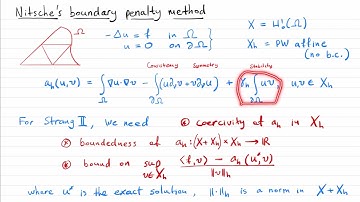 Nitsche's boundary penalty method
Ω
-Δu = f in Ω
u = 0 on ∂Ω
X = H₀¹(Ω)
Xₕ = PW affine
(no b.c.)
Consistency Symmetry Stability
aₕ(u,v) = ∫_Ω ∇u·∇v - ∫_∂Ω (u∂ᵥv + v∂ᵥu) + γₕ ∫_∂Ω uv, u,v ∈ Xₕ
For Strang II, we need • coercivity of aₕ in Xₕ
• boundedness of aₕ: (X+Xₕ) × Xₕ → ℝ
• bound on sup_{v∈Xₕ} (⟨f,v⟩ - aₕ(u*,v)) / ‖v‖ₕ
where u* is the exact solution, ‖·‖ₕ is a norm in X+Xₕ